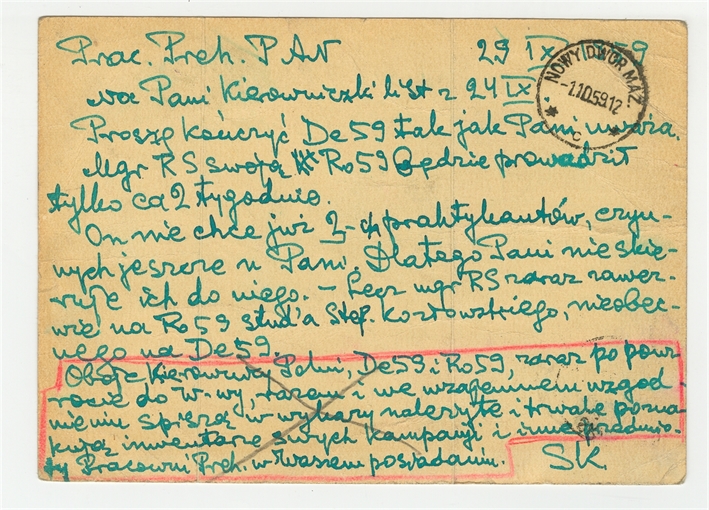 Prac. Preh. PAN 29 IX 1959
NOWY DWÓR MAZ.
-1.10.59.12
c
Na Pani Kierowniczki list z 24 IX
Proszę kończyć De 59 tak jak Pani uważa.
Mgr RS swoją Ro 59 będzie prowadził
tylko ca 2 tygodnie.
On nie chce już 2-ch praktykantów, czyn-
nych jeszcze u Pani. Dlatego Pani nie skie-
ruje ich do niego. – Lecz mgr RS zaraz zawez-
wie na Ro 59 stud'a Stef. Kozłowskiego, nieobec-
nego na De 59.
Oboje Kierownicy Pełni, De 59 i Ro 59, zaraz po pow-
rocie do W-wy, razem i we wzajemnem uzgod-
nieniu spiszą w wykazy należyte i trwale
kują inwentarze swych kampanji i inne przedmio-
ty Pracowni Preh. w Waszem posiadaniu. SK.